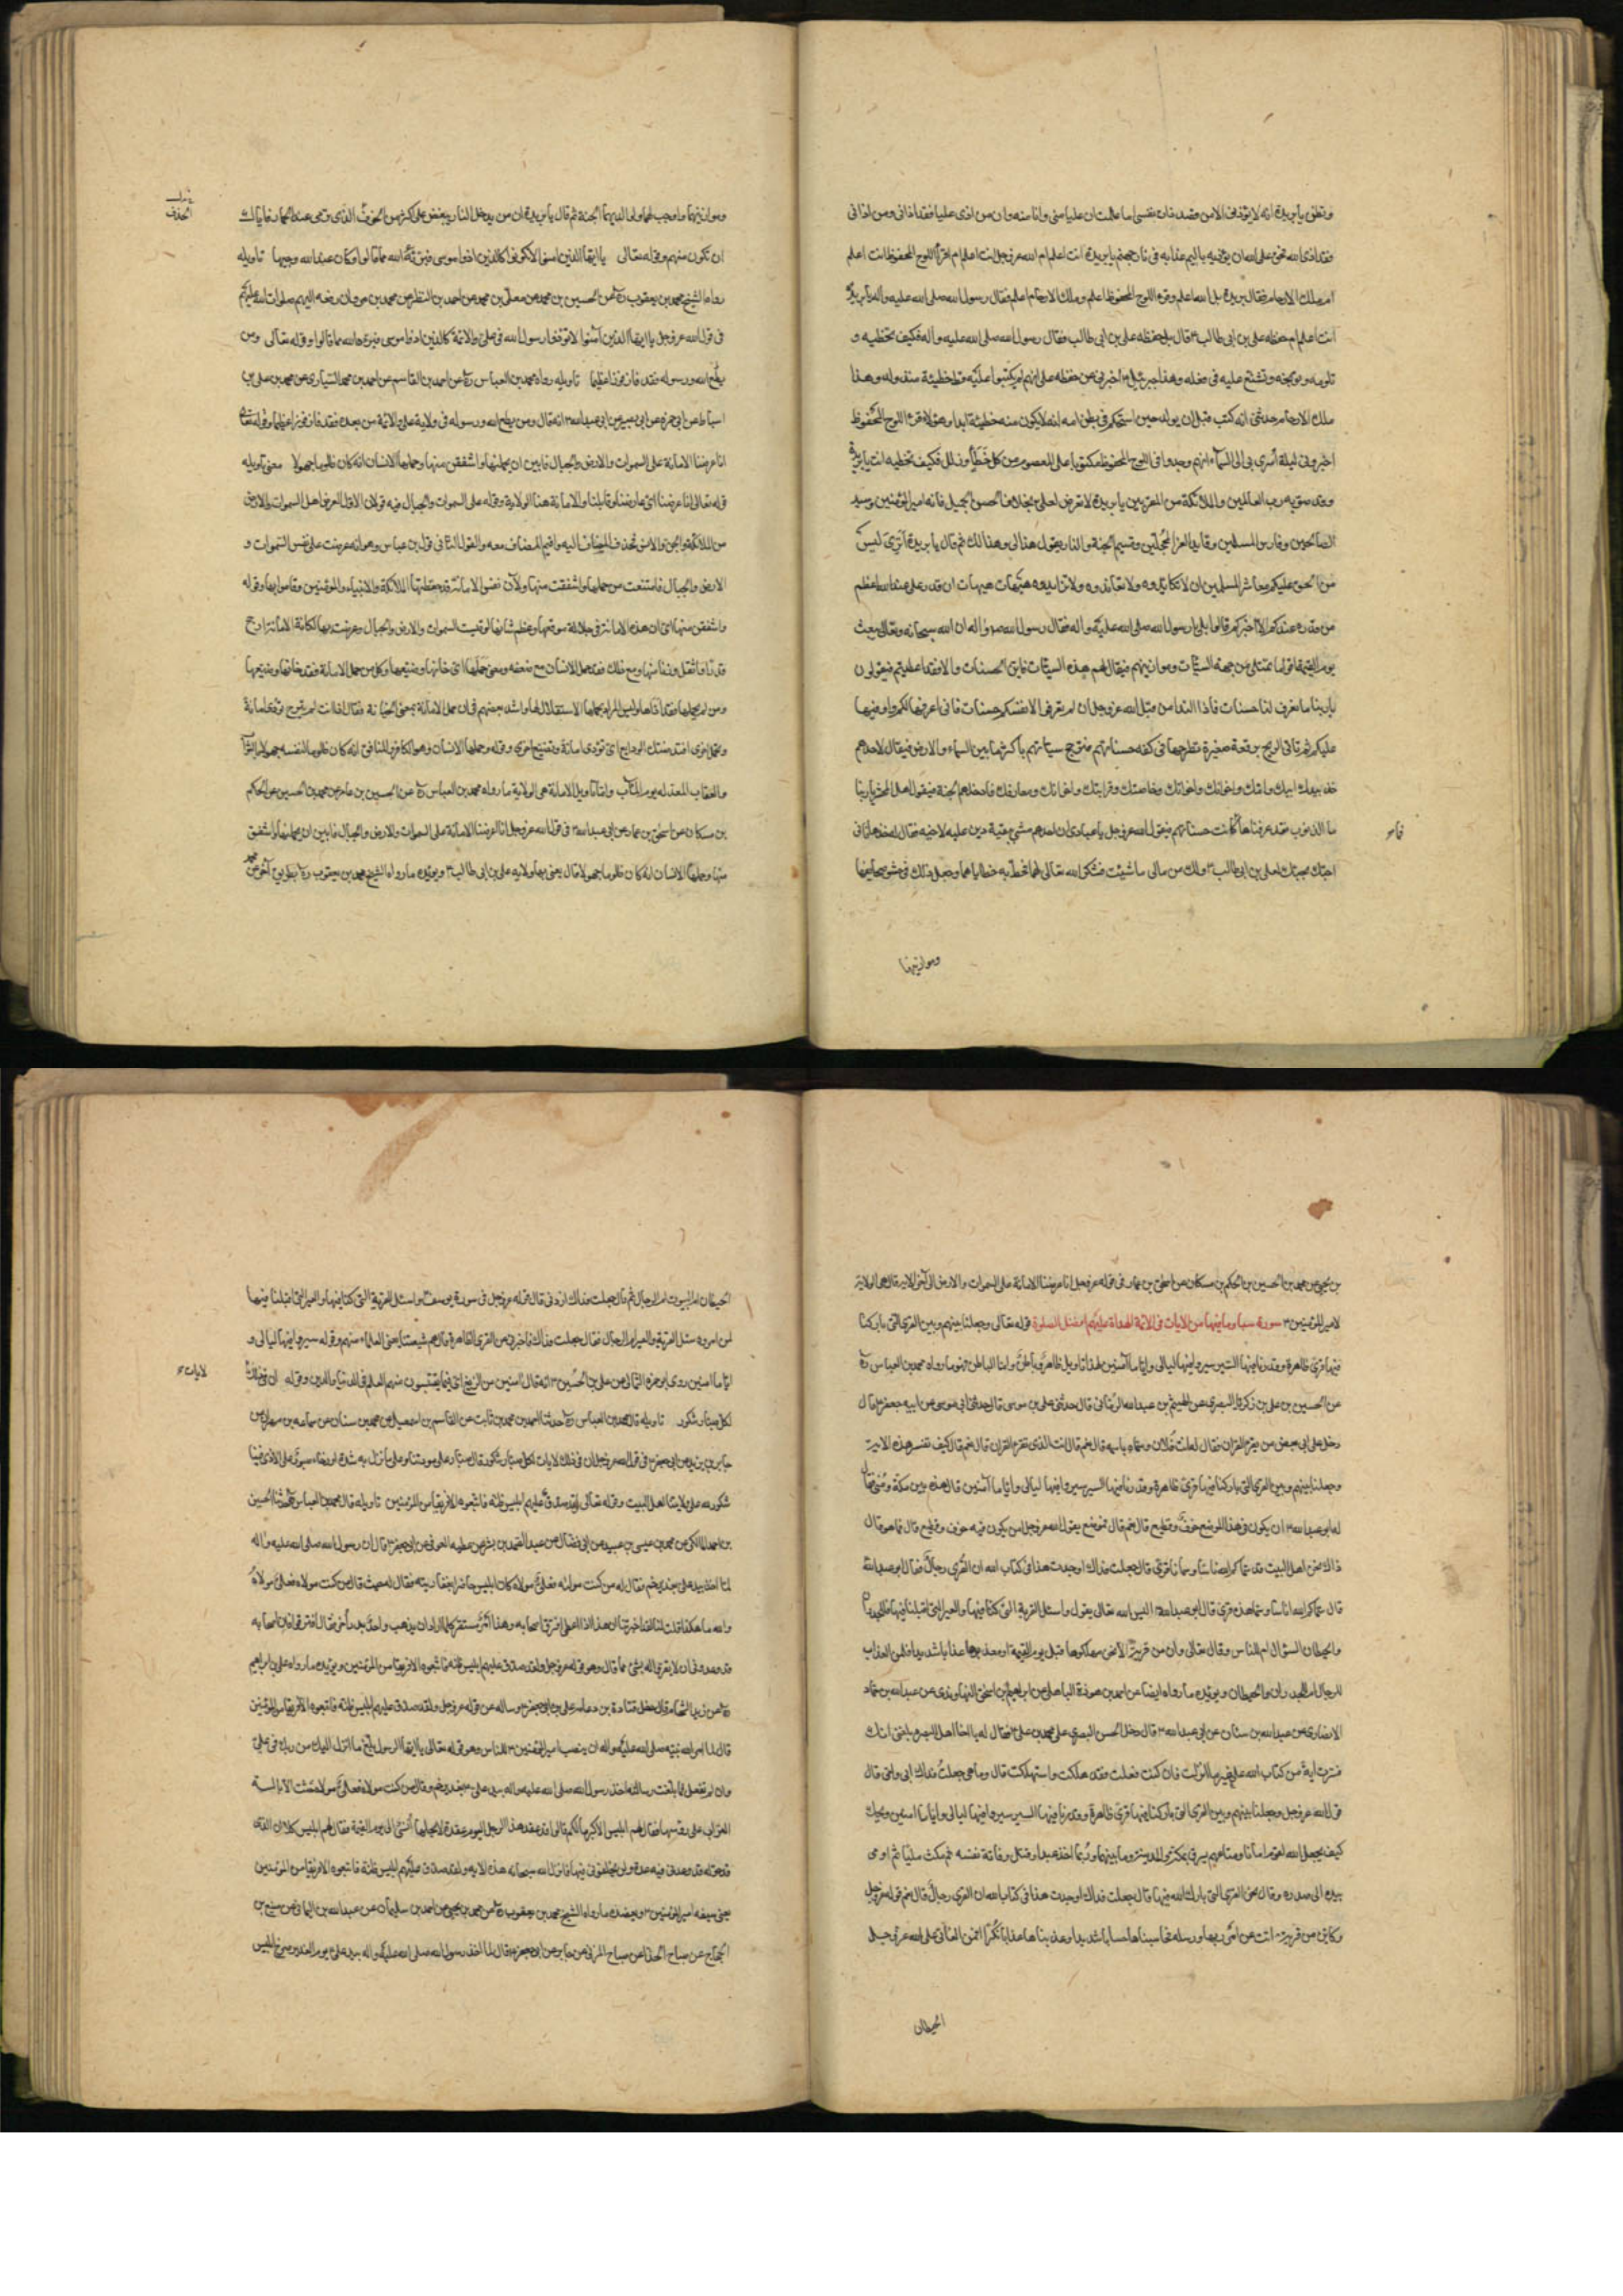 وتظن يا بريدة انه لا يؤذى الا من قصد ذات نفسى اما علمت ان عليا منى وانا منه وان من اذى عليا فقد اذانى ومن اذانى
فقد اذى الله فحق على الله ان يؤذيه باليم عذابه فى نار جهنم يا بريدة انت اعلم ام الله عز وجل انت اعلم ام اقرأ اللوح المحفوظ انت اعلم
ام ملك الارحام فقال بريدة بل الله اعلم وقرء اللوح المحفوظ اعلم وملك الارحام اعلم فقال رسول الله صلى الله عليه واله يا بريدة
انت اعلم ام حفظه على بن ابى طالب ٤ قال بل حفظه على بن ابى طالب فقال رسول الله صلى الله عليه واله فكيف تخطيه و
تلومه وتوبخه وتشنع عليه فى فعله وهذا جبرئيل ٤ اخبرنى عن حفظه على انهم لم يكتبوا عليه قط خطيئة منذ ولد وهذا
ملك الارحام حدثنى انه كتب قبل ان يولد حين استحكم فى بطن امه انه لا يكون منه خطيئة ابدا وهؤلاء قراء اللوح المحفوظ
اخبرونى ليلة اسرى بى الى السماء انهم وجدوا فى اللوح المحفوظ مكتوبا على المعصوم من كل خطأ وزلل فكيف تخطيه انت يا بريدة
وقد صوبه رب العالمين والملائكة من المقربين يا بريدة لا تعرض لعلى بخلاف الحسن الجميل فانه امير المؤمنين وسيد
الصالحين وفارس المسلمين وقايد الغر المحجلين وقسيم الجنة والنار يقول هذا لى وهذا لك ثم قال يا بريدة اترى ليس
من الحق عليكم معاشر المسلمين ان لا تكايدوه ولا تعاندوه ولا تزايدوه هيهات هيهات ان قدر على عند الله اعظم
من قدره عندكم الا اخبركم قالوا بلى يا رسول الله صلى الله عليه واله فقال رسول الله ص واله ان الله سبحانه وتعالى يبعث
يوم القيمة اقواما تمتلى من جهة السيئات موازينهم فيقال لهم هذه السيئات فاين الحسنات والا فقد عطبتم فيقولون
يا ربنا ما نعرف لنا حسنات فاذا النداء من قبل الله عز وجل ان لم تعرفوا لانفسكم حسنات فانى اعرفها لكم واوفرها
عليكم ثم تاتى الريح برقعة صغيرة تطرحها فى كفه حسناتهم فترجح سيئاتهم باكثر ما بين السماء والارض فيقال لاحدهم
خذ بيد ابيك وامك واخوانك واخواتك وخاصتك وقراباتك واخدانك ومعارفك فادخلهم الجنة فيقول اهل المحشر يا ربنا
ما الذنوب فقد عرفناها فما كانت حسناتهم فيقول الله عز وجل يا عبادى ان احدهم مشى ببقية دين عليه لاخيه فقال له خذها فانى
فما
احبك بحبك لعلى بن ابى طالب ٤ ولك من مالى ما شئت فشكر الله تعالى لهما فحط به خطاياهما وجعل ذلك فى حشو صحايفهما
وموازينهما
وموازينهما واوجب لهما ولوالديهما الجنة ثم قال يا بريدة ان من يدخل النار ببغض على اكثر من الخذف الذى يرمى عند الجمار فاياك
الخذف
ان تكون منهم وقوله تعالى يا ايها الذين امنوا لا تكونوا كالذين اذوا موسى فبرأه الله مما قالوا وكان عند الله وجيها تاويله
رواه الشيخ محمد بن يعقوب ره عن الحسين بن محمد عن معلى بن محمد عن احمد بن النظر عن محمد بن مروان رفعه اليهم صلوات الله عليهم
فى قول الله عز وجل يا ايها الذين آمنوا لا تؤذوا رسول الله فى على والائمة كالذين اذوا موسى فبرءه الله مما قالوا وقوله تعالى ومن
يطع الله ورسوله فقد فاز فوزا عظيما تاويله رواه محمد بن العباس ره عن احمد بن القاسم عن احمد بن محمد السيارى عن محمد بن على بن
اسباط عن ابى حمزه عن ابى بصير عن ابى عبد الله ٤ انه قال ومن يطع الله ورسوله فى ولاية على والائمة من بعده فقد فاز فوزا عظيما وقوله تعالى
انا عرضنا الامانة على السموات والارض والجبال فابين ان يحملنها واشفقن منها وحملها الانسان انه كان ظلوما جهولا معنى تاويله
قوله تعالى انا عرضنا اى عارضنا وقابلنا والامانة هنا الولاية وقوله على السموات والجبال فيه قولان الاول العرض على اهل السموات والارض
من الملائكة والجن والانس فحذف المضاف اليه واقيم المضاف معه والقول الثانى قول ابن عباس وهو انه عرضت على نفس السموات و
الارض والجبال فامتنعت من حملها واشفقت منها ولان نفس الامانة قد حفظتها الملائكة والانبياء والمؤمنين وقاموا بها وقوله
واشفقن منها اى ان هذه الامانة فى جلالة موقعها وعظم شانها لو قيست السموات والارض والجبال وعرضت بها لكانت الامانة ارجح
قدرا واثقل وزنا منها ومع ذلك فقد حمل الانسان مع ضعفه ومعنى حملها اى خانها وضيعها وكل من حمل الامانة فقد خانها وضيعها
ومن لم يحملها فقد اداها وليس المراد بحملها الاستقلال لها وانشد بعضهم فى ان حمل الامانة بمعنى الخيانة فقال اذا انت لم تبرح تؤدى امانة
وتحمل اخرى افسدتك الودايع اى تؤدى امانة وتضيع اخرى وقوله وحملها الانسان وهو الكافر والمنافق انه كان ظلوما لنفسه جهولا بالثواب
والعقاب المعد له يوم المآب واما تاويل الامانة هى الولاية ما رواه محمد بن العباس ره عن الحسين بن عامر عن محمد بن الحسين عن الحكم
بن مسكان عن اسحق بن عمار عن ابى عبد الله ٤ فى قول الله عز وجل انا عرضنا الامانة على السموات والارض والجبال فابين ان يحملنها واشفقن
منها وحملها الانسان انه كان ظلوما جهولا قال يعنى بها ولاية على بن ابى طالب ٤ ويؤيده ما رواه الشيخ محمد بن يعقوب ره بطريق آخر عن محمد
بن يحيى عن محمد بن الحسين بن الحكم بن مسكان عن اسحق بن عمار فى قوله عز وجل انا عرضنا الامانة على السموات والارض الى آخر الاية قال هى الولاية
لامير المؤمنين ٤ سورة سبا وما فيها من الايات فى الائمة الهداة عليهم افضل الصلوة قوله تعالى وجعلنا بينهم وبين القرى التى باركنا
فيها قرى ظاهرة وقدرنا فيها السير سيروا فيها ليالى واياما آمنين لهذا تاويل ظاهر وباطن واما الباطن فهو ما رواه محمد بن العباس ره
عن الحسين بن على بن زكريا البصرى عن الهيثم بن عبد الله الرمانى قال حدثنى على بن موسى قال حدثنى ابى موسى عن ابيه جعفر ٤ قال
دخل على ابى بعض من يفسر القران فقال له انت فلان وسماه باسمه قال نعم قال انت الذى تفسر القران قال نعم قال كيف تفسر هذه الاية
وجعلنا بينهم وبين القرى التى باركنا فيها قرى ظاهرة وقدرنا فيها السير سيروا فيها ليالى واياما آمنين قال هذه بين مكة ومنى فقال
له ابو عبد الله ٤ ان يكون فى هذا الموضع خوف وقطيع قال نعم قال فموضع يقول الله عز وجل امن يكون فيه خوف وقطيع قال فما هو قال
ذاك نحن اهل البيت قد سماكم الله ناسا وسمانا قرى قال جعلت فداك اوجدت هذا فى كتاب الله ان القرى رجال فقال ابو عبد الله
قال سماكم الله اناسا وسمانا هذه قرى قال ابو عبد الله اليس الله تعالى يقول واسئل القرية التى كنا فيها والعير التى اقبلنا فيها فللجدران
والحيطان السؤال ام للناس وقال تعالى وان من قرية الا نحن مهلكوها قبل يوم القيمة او معذبوها عذابا شديدا فلمن العذاب
للرجال ام للجدران والحيطان ويؤيده ما رواه ايضا عن احمد بن هوذة الباهلى عن ابراهيم بن اسحق النهاوندى عن عبد الله بن حماد
الانصارى عن عبد الله بن سنان عن ابى عبد الله ٤ قال دخل الحسن البصرى على محمد بن على ٤ فقال له يا اخا اهل البصرة بلغنى انك
فسرت آية من كتاب الله على غير ما انزلت فان كنت فعلت فقد هلكت واستهلكت قال وما هى جعلت فداك ابى وامى قال
قول الله عز وجل وجعلنا بينهم وبين القرى التى باركنا فيها قرى ظاهرة وقدرنا فيها السير سيروا فيها ليالى واياما امنين ويحك
كيف يجعل الله لقوم امانا ومتاعهم يسرق بمكة والمدينة وما بينهما وربما اخذ عبدا وقتل وفاتة نفسه ثم مكث مليا ثم اومى
بيده الى صدره وقال نحن القرى التى بارك الله فيها قال جعلت فداك اوجدت هذا فى كتاب الله ان القرى رجال قال نعم قوله عز وجل
وكاين من قرية عتت عن امر ربها ورسله فحاسبناها حسابا شديدا وعذبناها عذابا نكرا فمن العاتى على الله عز وجل
الحيطان
الحيطان ام البيوت ام الرجال ثم قال جعلت فداك زدنى قال قوله عز وجل فى سورة يوسف واسئل القرية التى كنا فيها والعير التى اقبلنا فيها
لمن امروه سئل القرية والعير ام الرجال فقال جعلت فداك فاخبرنى عن القرى الظاهرة قال هم شيعتنا يعنى العلماء منهم وقوله سيروا فيها ليالى و
اياما امنين روى ابو حمزه الثمالى عن على بن الحسين ٤ انه قال آمنين من الزيغ اى فيما يقتبسون منهم العلم فى الدنيا والدين وقوله ان فى ذلك
لايات
لكل صبار شكور تاويله قال محمد بن العباس ره حدثنا احمد بن محمد بن ثابت عن القاسم بن اسمعيل عن محمد بن سنان عن سماعه بن مهران عن
جابر بن يزيد عن ابى جعفر ٤ فى قول الله عز وجل ان فى ذلك لايات لكل صبار شكور قال صبار على مودتنا وعلى ما نزل به شدة او رخاء صبور على الاذى فينا
شكور لله على ولايتنا اهل البيت وقوله تعالى ولقد صدق عليهم ابليس ظنه فاتبعوه الا فريقا من المؤمنين تاويله قال محمد بن العباس حدثنا الحسين
بن احمد المالكى عن محمد بن عيسى بن عبيد عن ابن فضال عن عبد الصمد بن بشر عن عطيه العوفى عن ابى جعفر ٤ قال ان رسول الله صلى الله عليه واله
لما اخذ بيد على بغدير خم فقال له من كنت مولاه فعلى مولاه كان ابليس حاضرا بعفاريته فقال له حيث قال من كنت مولاه فعلى مولاه
والله ما هكذا قلت لنا لقد اخبرتنا ان هذا اذا مضى افترق اصحابه وهذا امر مستقر كلما اراد ان يذهب واحد بدر آخر فقال افترقوا فان اصحابه
قد وعدونى ان لا يقروا له بشئ مما قال وهو قوله عز وجل ولقد صدق عليهم ابليس ظنه فاتبعوه الا فريقا من المؤمنين ويؤيده ما رواه على بن ابراهيم
ره عن زيد الشحام قال دخل قتادة بن دعامة على ابى جعفر ٤ وساله عن قوله عز وجل ولقد صدق عليهم ابليس ظنه فاتبعوه الا فريقا من المؤمنين
قال لما امر الله نبيه صلى الله عليه واله ان ينصب امير المؤمنين ٤ للناس وهو قوله تعالى يا ايها الرسول بلغ ما انزل اليك من ربك فى على
وان لم تفعل فما بلغت رسالته اخذ رسول الله صلى الله عليه واله بيد على بغدير خم وقال من كنت مولاه فعلى مولاه حثت الابالسة
التراب على رؤسها فقال لهم ابليس الاكبر ما لكم قالوا قد عقد هذا الرجل اليوم عقدة لا يحلها انسى الى يوم القيمة فقال لهم ابليس كلا ان الذى
قد حوله قد وعدنى فيه عدة ولن يخلفونى فيها فانزل الله سبحانه هذه الاية ولقد صدق عليهم ابليس ظنه فاتبعوه الا فريقا من المؤمنين
يعنى شيعة امير المؤمنين ٤ ويعضده ما رواه الشيخ محمد بن يعقوب ره عن محمد بن يحيى عن احمد بن سليمان عن عبد الله بن اليمانى عن مسمع بن
الحجاج عن صباح الحذا عن صباح المزنى عن جابر عن ابى جعفر ٤ قال لما اخذ رسول الله صلى الله عليه واله بيد على يوم الغدير صرخ ابليس